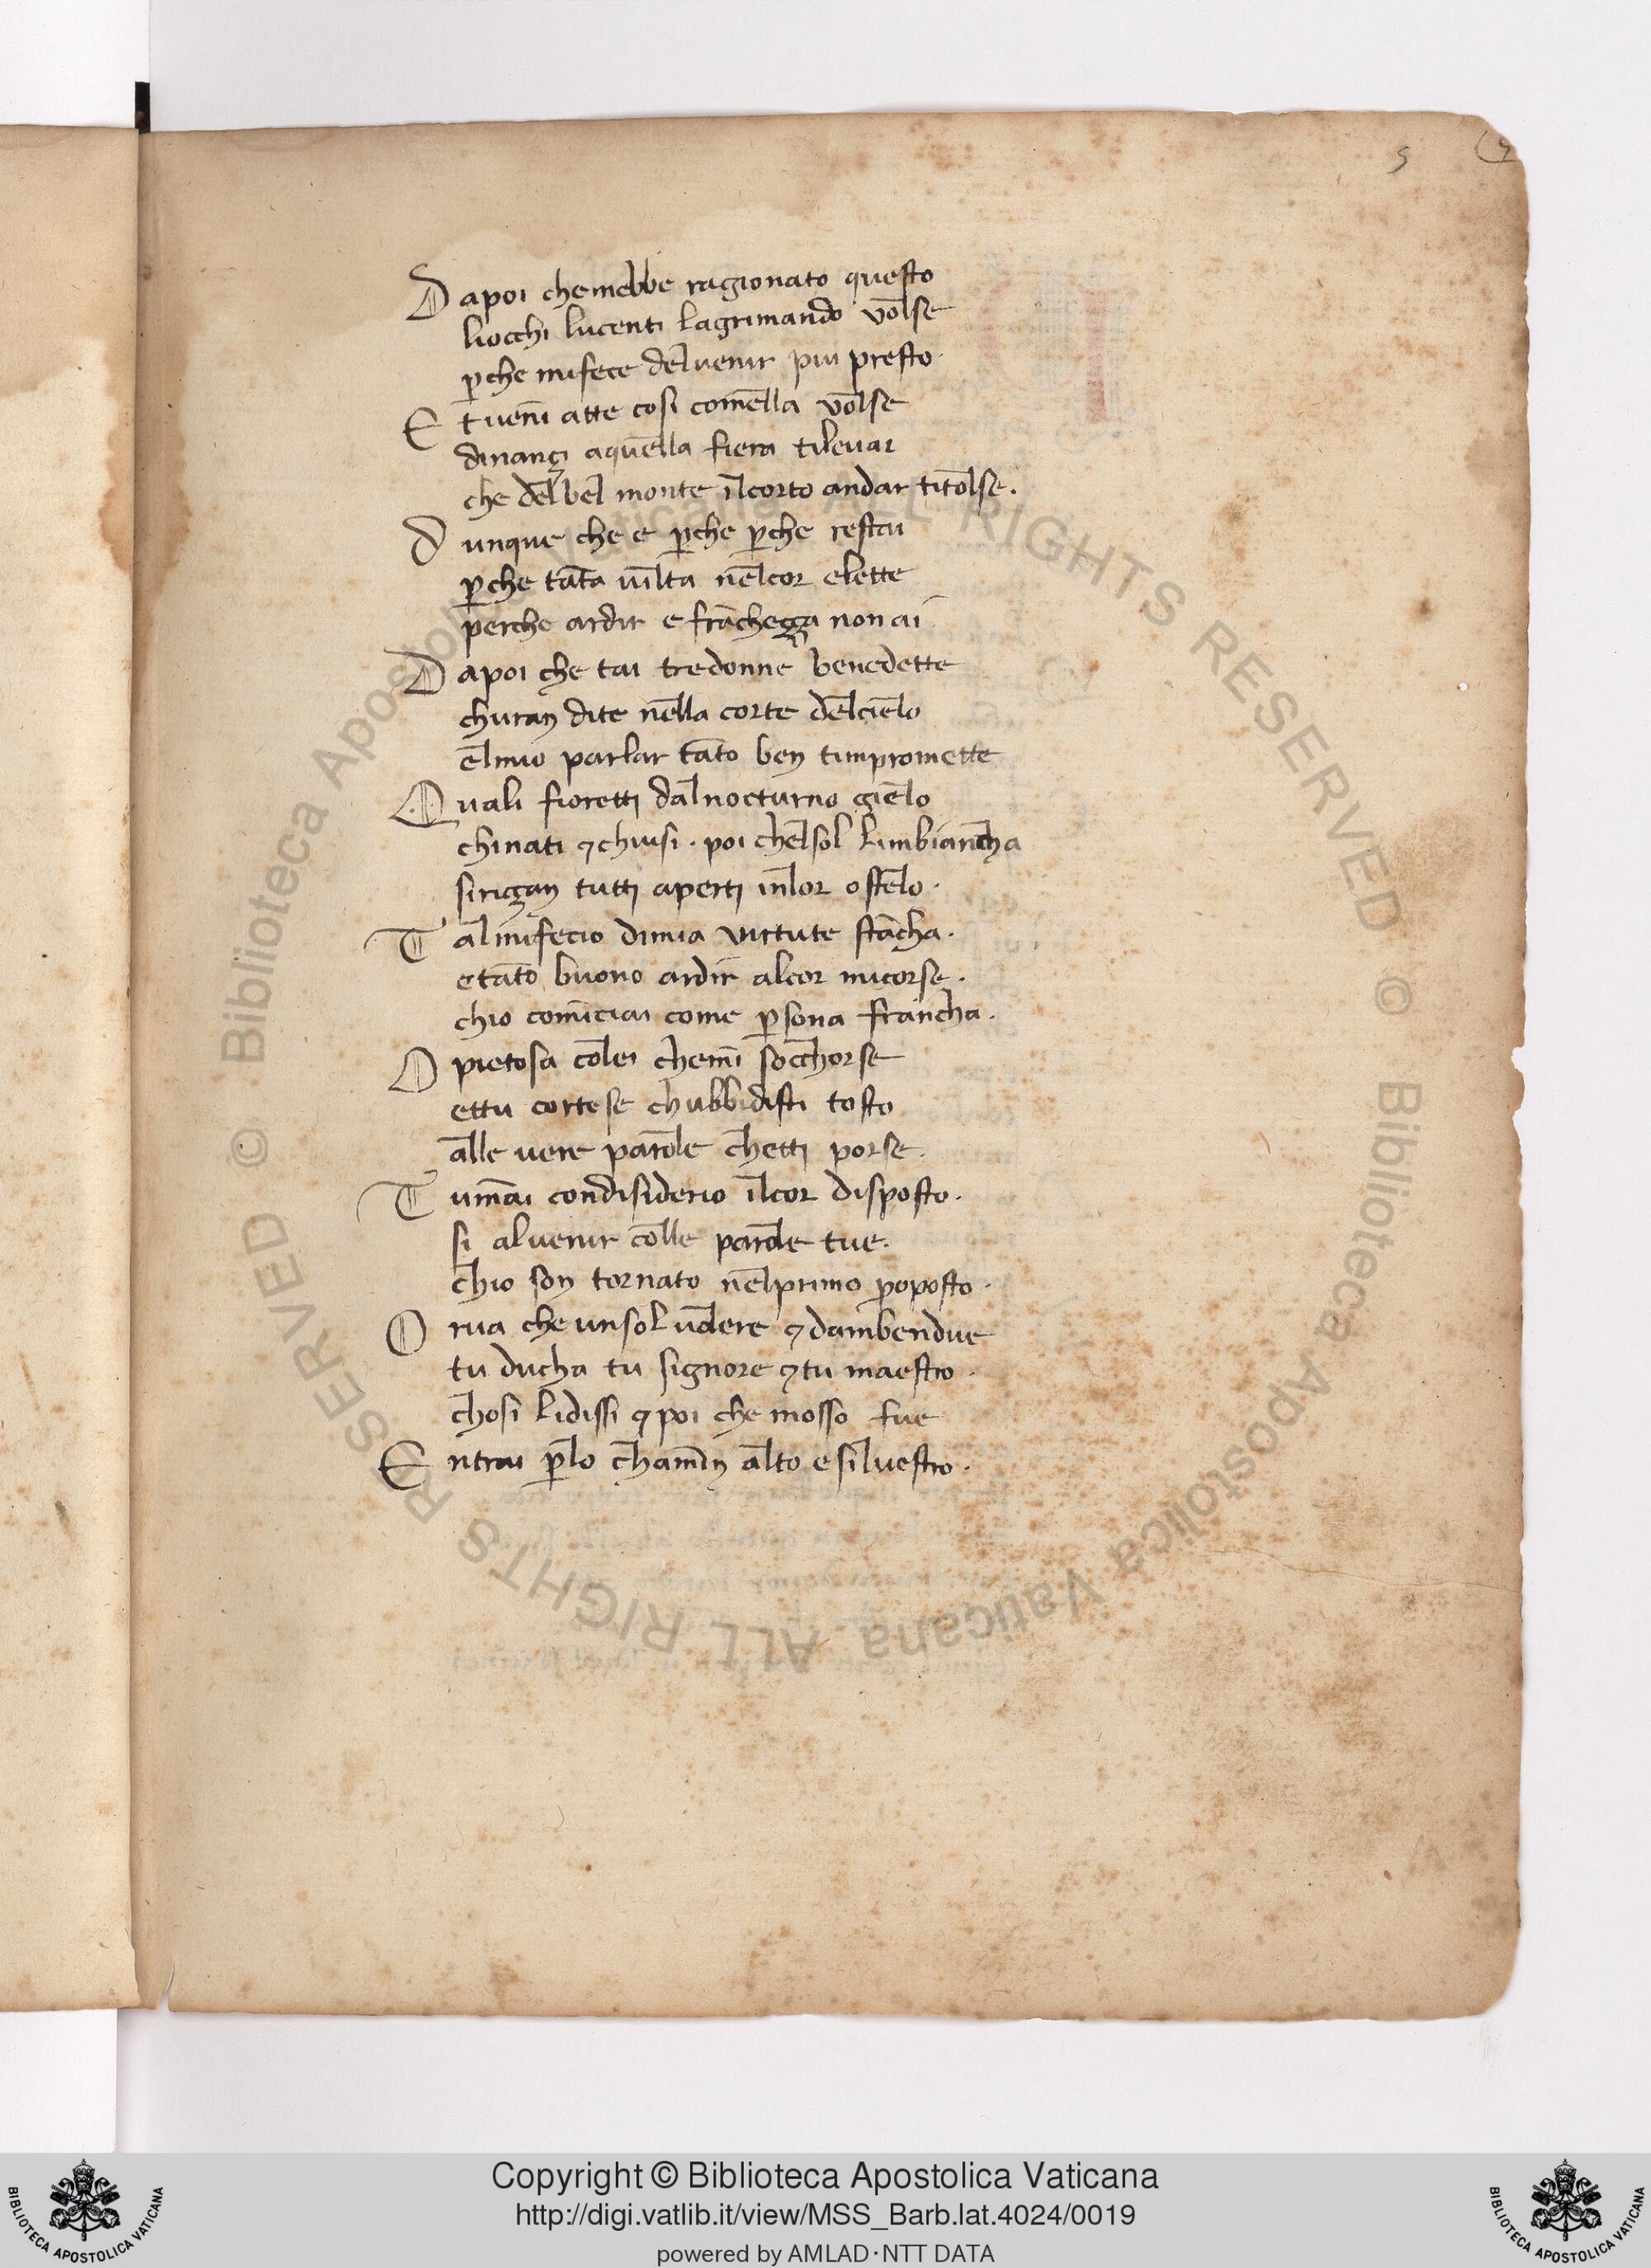 5
D apoi chemebbe ragionato questo
liocchi lucenti lagrimando volse
ꝑche mifece deluenir piu presto.
E t uenni atte cosi com̄ella volse
dinançi aquella fiera tileuai
che del bel monte ilcorto andar titolse.
D unque che e ꝑche ꝑche restai
ꝑche tāta uilta nelcor elette
perche ardir e frācheçça non ai
D apoi che tai tredonne benedette
churan dite nella corte delcielo
elmio parlar tāto ben timpromette
Q uali fioretti dalnocturno gielo
chinati ⁊ chiusi. poi chelsol limbiancha
siriçan tutti aperti inlor ostelo.
T al mifecio dimia virtute stācha.
e tāto buono ardir alcor micorse.
chio comīciai come ꝑsona francha.
O pietosa colei chemī socchorse
ettu cortese chubbidisti tosto
alle uere parole chetti porse.
T umāi condisiderio ilcor disposto.
si aluenir colle parole tue.
chio son tornato nelprimo ꝓposto.
O rua che unsol uolere ⁊ dambendue
tu ducha tu signore ⁊ tu maestro.
chosi lidissi ⁊ poi che mosso fue
E ntrai ꝑlo chamīn alto esiluestro.
© Biblioteca Apostolica Vaticana ALL RIGHTS RESERVED © Biblioteca Apostolica Vaticana ALL RIGHTS RESERVED
Copyright © Biblioteca Apostolica Vaticana
http://digi.vatlib.it/view/MSS_Barb.lat.4024/0019
powered by AMLAD·NTT DATA
BIBLIOTECA APOSTOLICA VATICANA
BIBLIOTECA APOSTOLICA VATICANA